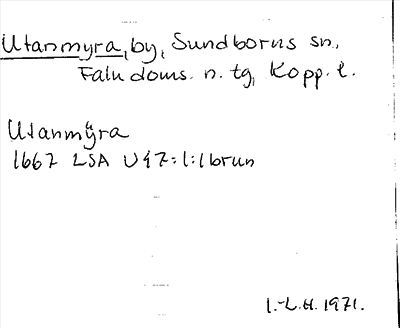 Utanmyra, by, Sundborns sn.,
Falu doms. n. tg, Kopp. l.
Utanmÿra
1667 LSA U47:1:1brun
I.-L.H. 1971.